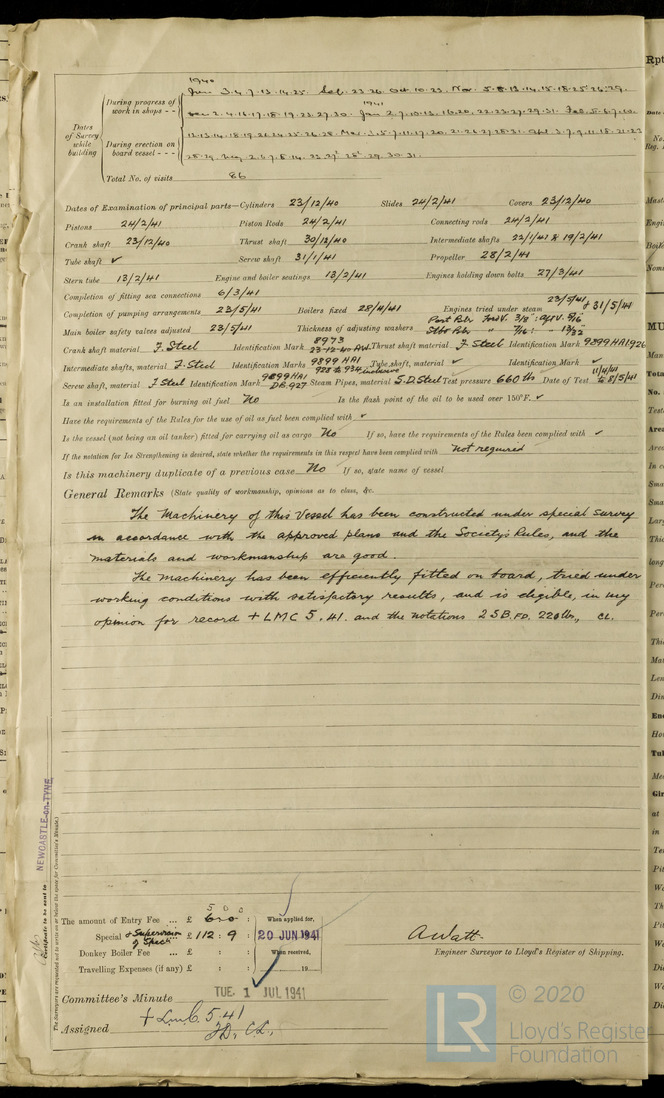 1940
During progress of work in shops - - June 3.4.7.13.14.25 Sep. 23.26. Oct. 10.23. Nov. 5.8.12.14.15.18.25.26.29.
1941
2.4.16.17.18.19.23.27.30. Jan 2.7.10.13.16.20.22.23.27.29.31. Feb. 5.6.7.10.
Dates of Survey while building
12.13.14.18.19.21.24.25.26.28. Mar. 3.5.7.11.17.20.21.26.27.28.31. Apl 3.7.9.11.18.21.23
During erection on board vessel - - -
Total No. of visits 86
Dates of Examination of principal parts—Cylinders 23/12/40 Slides 24/2/41 Covers 23/12/40
Pistons 24/2/41 Piston Rods 24/2/41 Connecting rods 24/2/41
Crank shaft 23/12/40 Thrust shaft 30/12/40 Intermediate shafts 22/1/41 & 19/2/41
Tube shaft ✓ Screw shaft 31/1/41 Propeller 28/2/41
Stern tube 13/2/41 Engine and boiler seatings 13/2/41 Engines holding down bolts 27/3/41
Completion of fitting sea connections 6/3/41
Completion of pumping arrangements 23/5/41 Boilers fixed 28/4/41 Engines tried under steam 23/5/41 & 31/5/41
Main boiler safety valves adjusted 23/5/41 Thickness of adjusting washers Port Blr Ford V. 3/8" : Aft V. 5/16"
Stbd Blr " 7/16" : " 13/32
Crank shaft material F. Steel Identification Mark 8973 23-12-40 AW. Thrust shaft material F. Steel Identification Mark 9899 HA1926
Intermediate shafts, material F. Steel Identification Marks 9899 HA1 928 to 934 inclusive Tube shaft, material ✓ Identification Mark ✓
Screw shaft, material F Steel Identification Mark 9899 HA1 DR. 927 Steam Pipes, material S.D. Steel Test pressure 660 lbs Date of Test 11/4/41 to 8/5/41
Is an installation fitted for burning oil fuel No Is the flash point of the oil to be used over 150°F. ✓
Have the requirements of the Rules for the use of oil as fuel been complied with ✓
Is the vessel (not being an oil tanker) fitted for carrying oil as cargo No If so, have the requirements of the Rules been complied with ✓
If the notation for Ice Strengthening is desired, state whether the requirements in this respect have been complied with Not required
Is this machinery duplicate of a previous case No If so, state name of vessel
General Remarks (State quality of workmanship, opinions as to class, &c.
The Machinery of this Vessel has been constructed under special survey
in accordance with the approved plans and the Society's Rules, and the
materials and workmanship are good.
The machinery has been efficiently fitted on board, tried under
working conditions with satisfactory results, and is eligible, in my
opinion for record + LMC 5.41. and the notations 2 SB. FD. 220 lbs., CL.
NEWCASTLE-on-TYNE
Certificate to be sent to
(The Surveyors are requested not to write on or below the space for Committee's Minute.)
The amount of Entry Fee ... £ 6 : 0 :
5 0 0
When applied for,
Special & Supervision of Specn £ 112 : 9 : 20 JUN 1941
Donkey Boiler Fee ... £ : : When received,
Travelling Expenses (if any) £ : : 19
A Watt.
Engineer Surveyor to Lloyd's Register of Shipping.
Committee's Minute TUE. 1 JUL 1941
Assigned + LMC 5.41
FD. CL.
LR © 2020
Lloyd's Register
Foundation